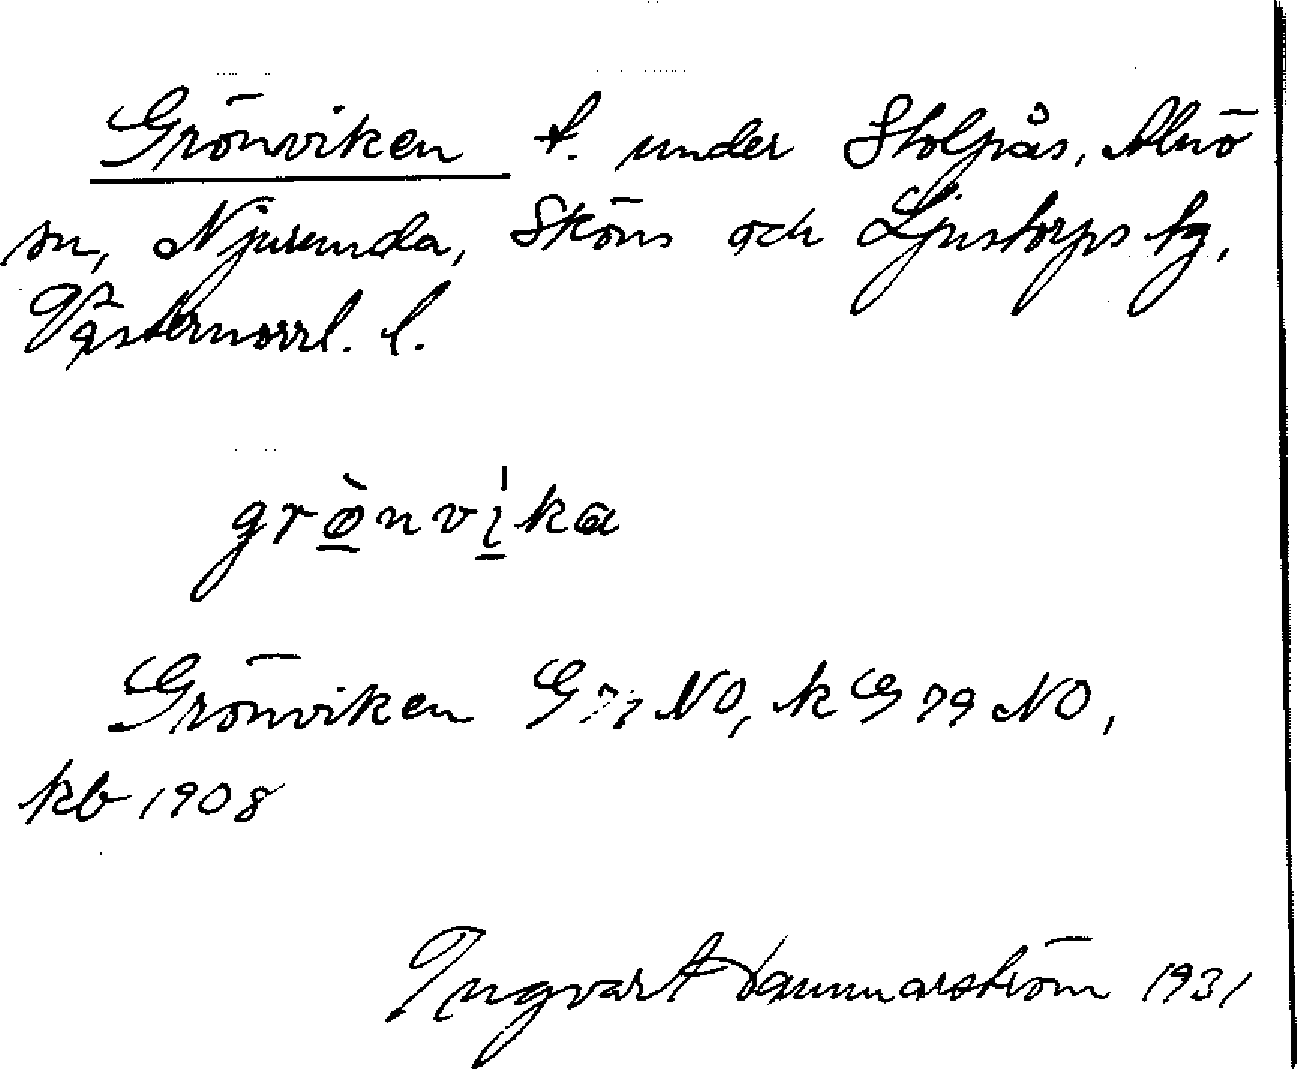 Grönviken t. under Stolpås, Alnö
sn, Njurunda, Sköns och Ljustorps tg,
Västernorrl. l.
grø̀nvi̍ka
Grönviken G 77 NO, k G 79 NO,
kb 1908
Ingvart Hammarström 1931